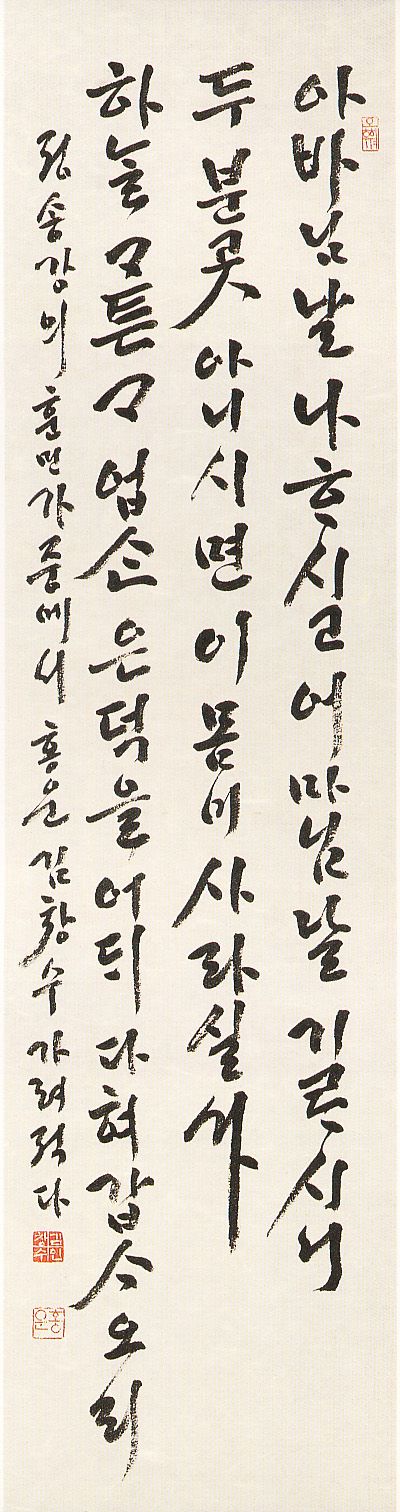 아바님 날 나흐시고 어마님 날 기르시니
두 분 곳 아니시면 이 몸이 사라실가
하늘 ᄀᆞ튼 ᄀᆞ 업슨 은덕을 어듸 다혀 갑사오리
정송강의 훈민가 중에서 홍운 김창수 가려 적다